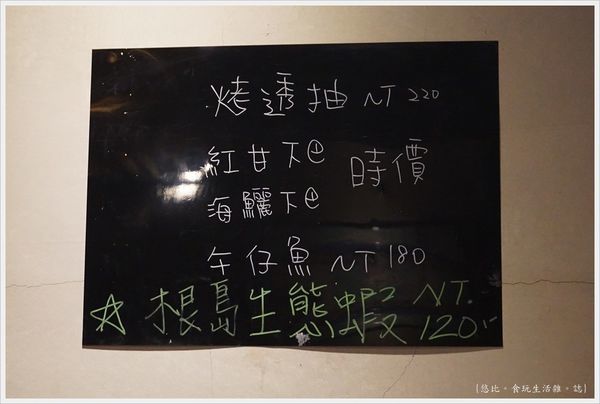 烤透抽 NT 220
紅甘下巴 時價
海鱺下巴
午仔魚 NT 180
☆根島生熊蝦 NT.120.-
{悠比。食玩生活雜。誌}